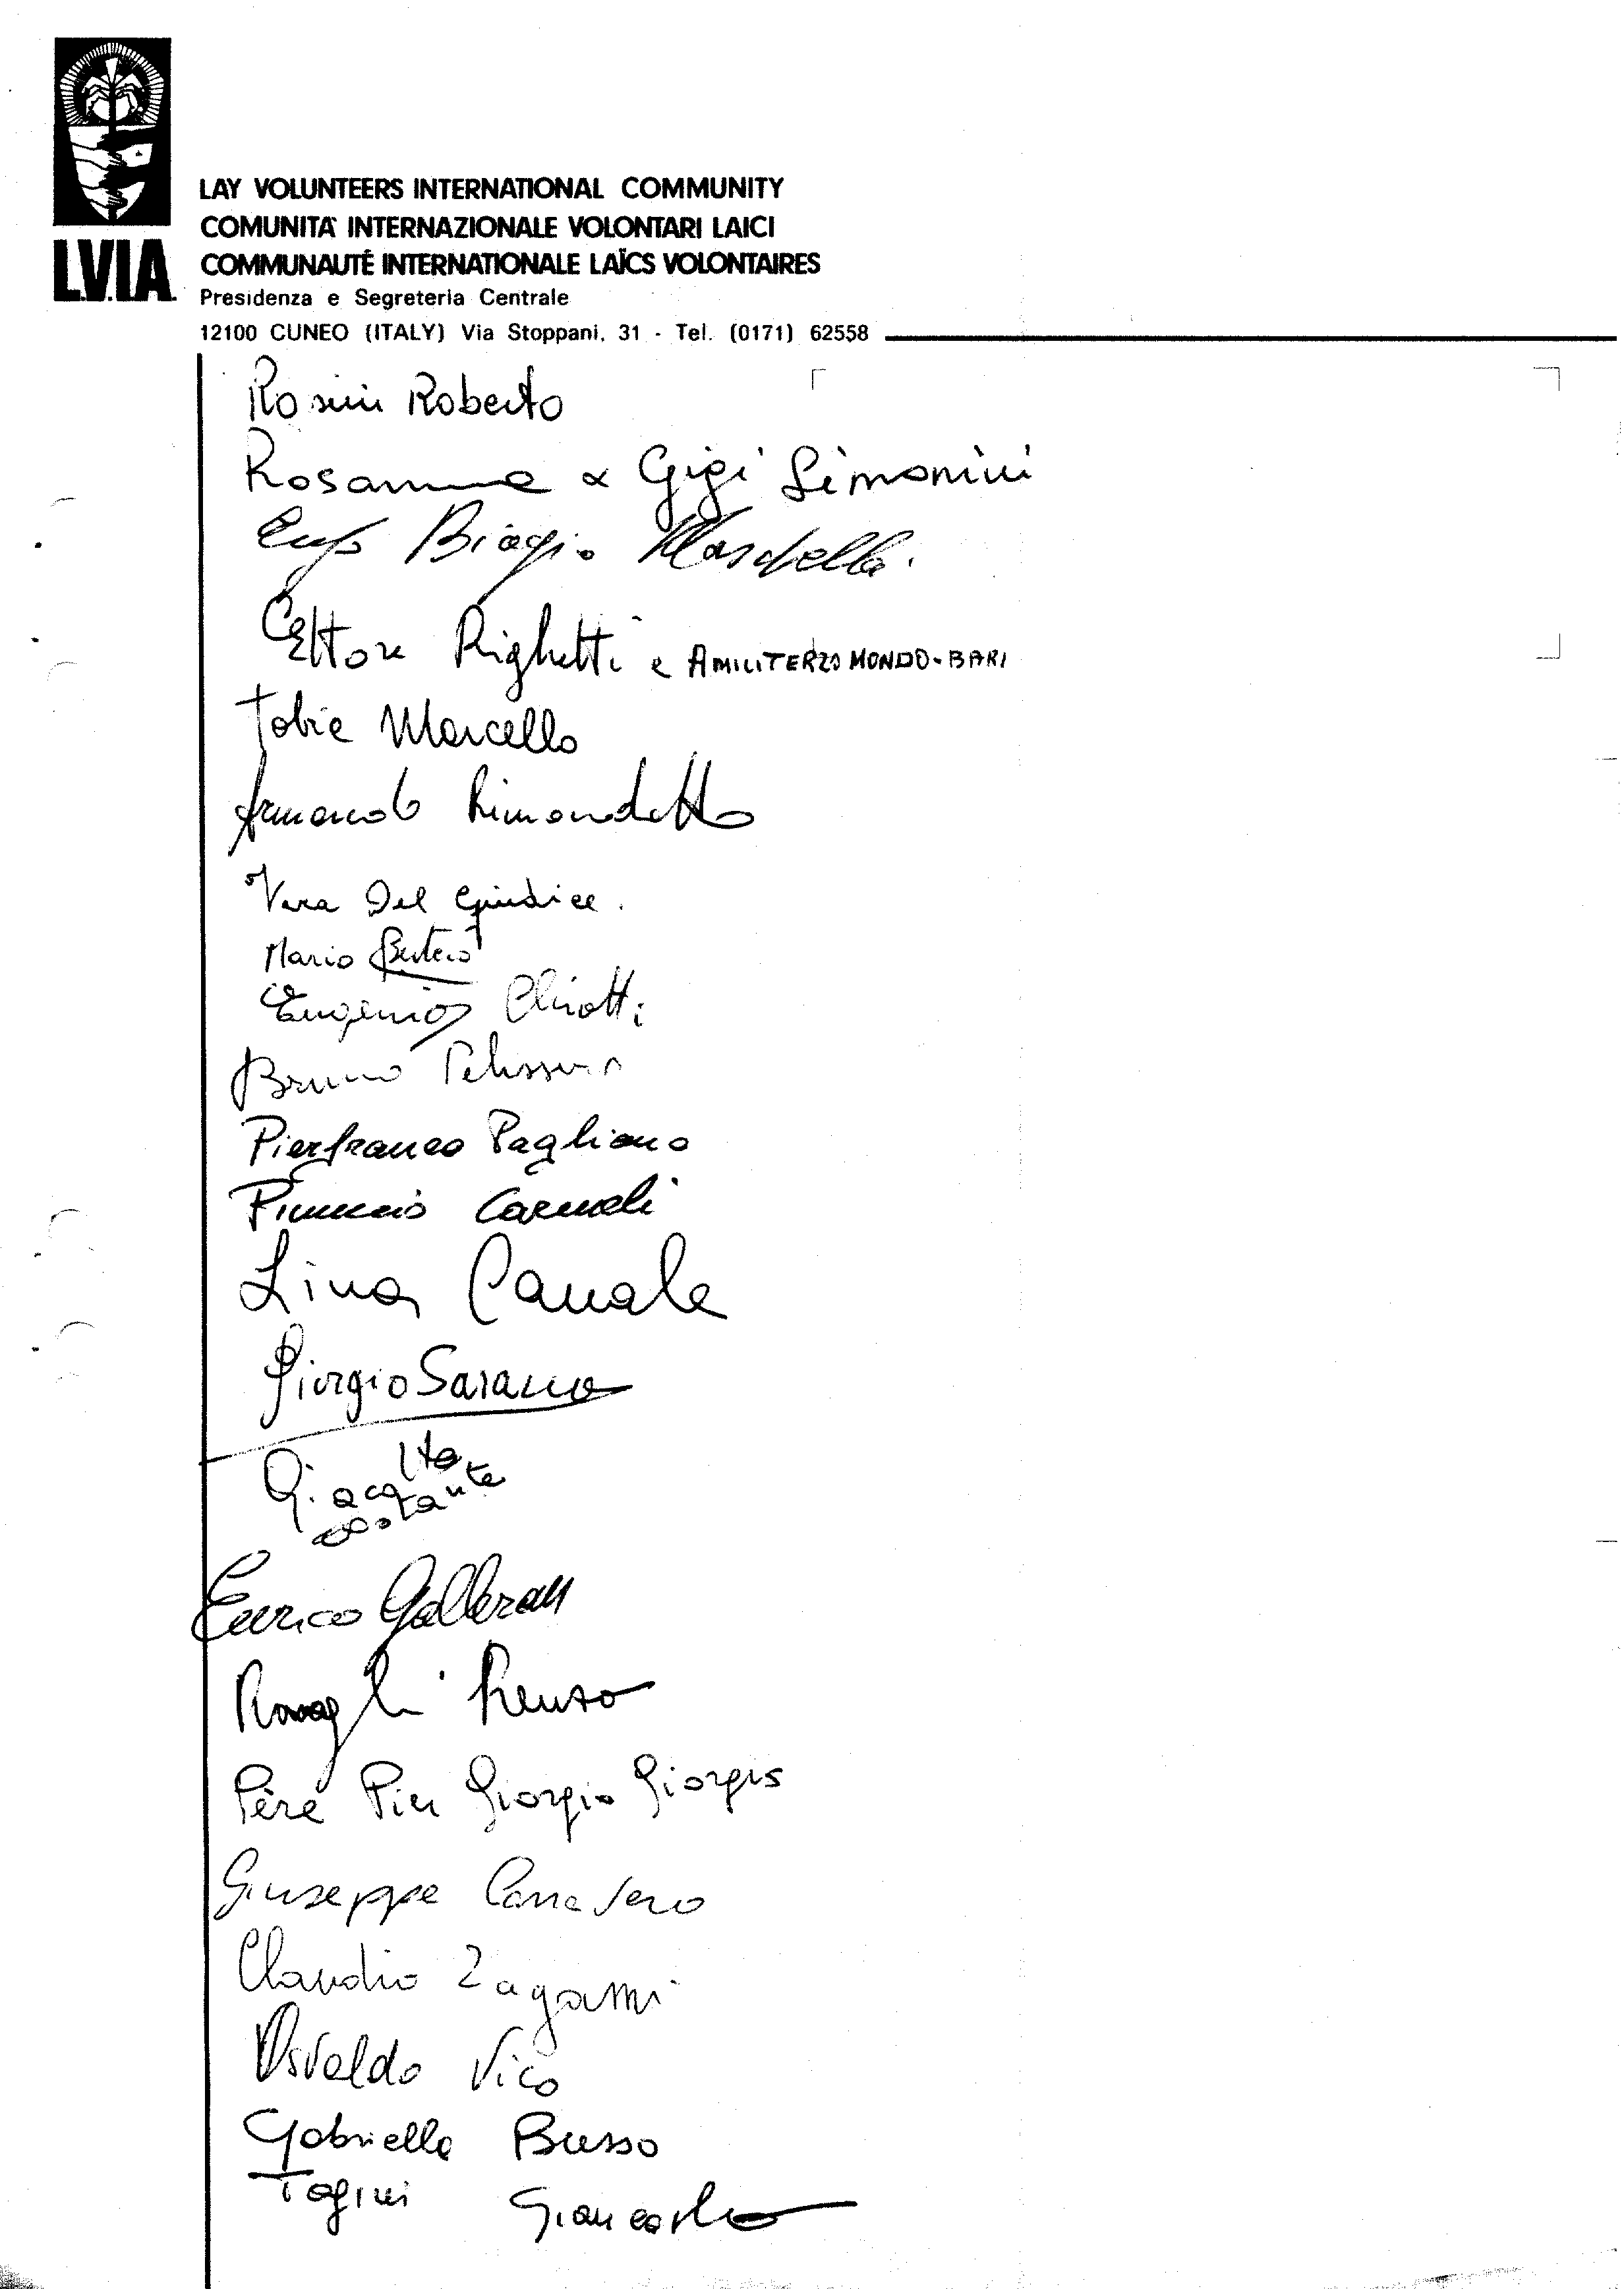 LAY VOLUNTEERS INTERNATIONAL COMMUNITY
COMUNITA' INTERNAZIONALE VOLONTARI LAICI
COMMUNAUTÉ INTERNATIONALE LAÏCS VOLONTAIRES
L.V.I.A.
Presidenza e Segreteria Centrale
12100 CUNEO (ITALY) Via Stoppani, 31 - Tel. (0171) 62558
Rosini Roberto
Rosanna & Gigi Simonini
Biagio
Ettore Righetti e AMICI TERZO MONDO-BARI
Marcello
Armando Rimondotto
Vera Del Giudice.
Mario Bertero
Eugenio Chiotti
Bruno Pelissero
Pierfranco Pagliano
Carmeli
Lina Canale
Giorgio Saranno
Costante
Enrico Galleran
Renzo
Père Pier Giorgio Giorgis
Giuseppe Cannavero
Claudio Zagami
Osvaldo Vico
Gabriella Busso
Tagini Giancarlo